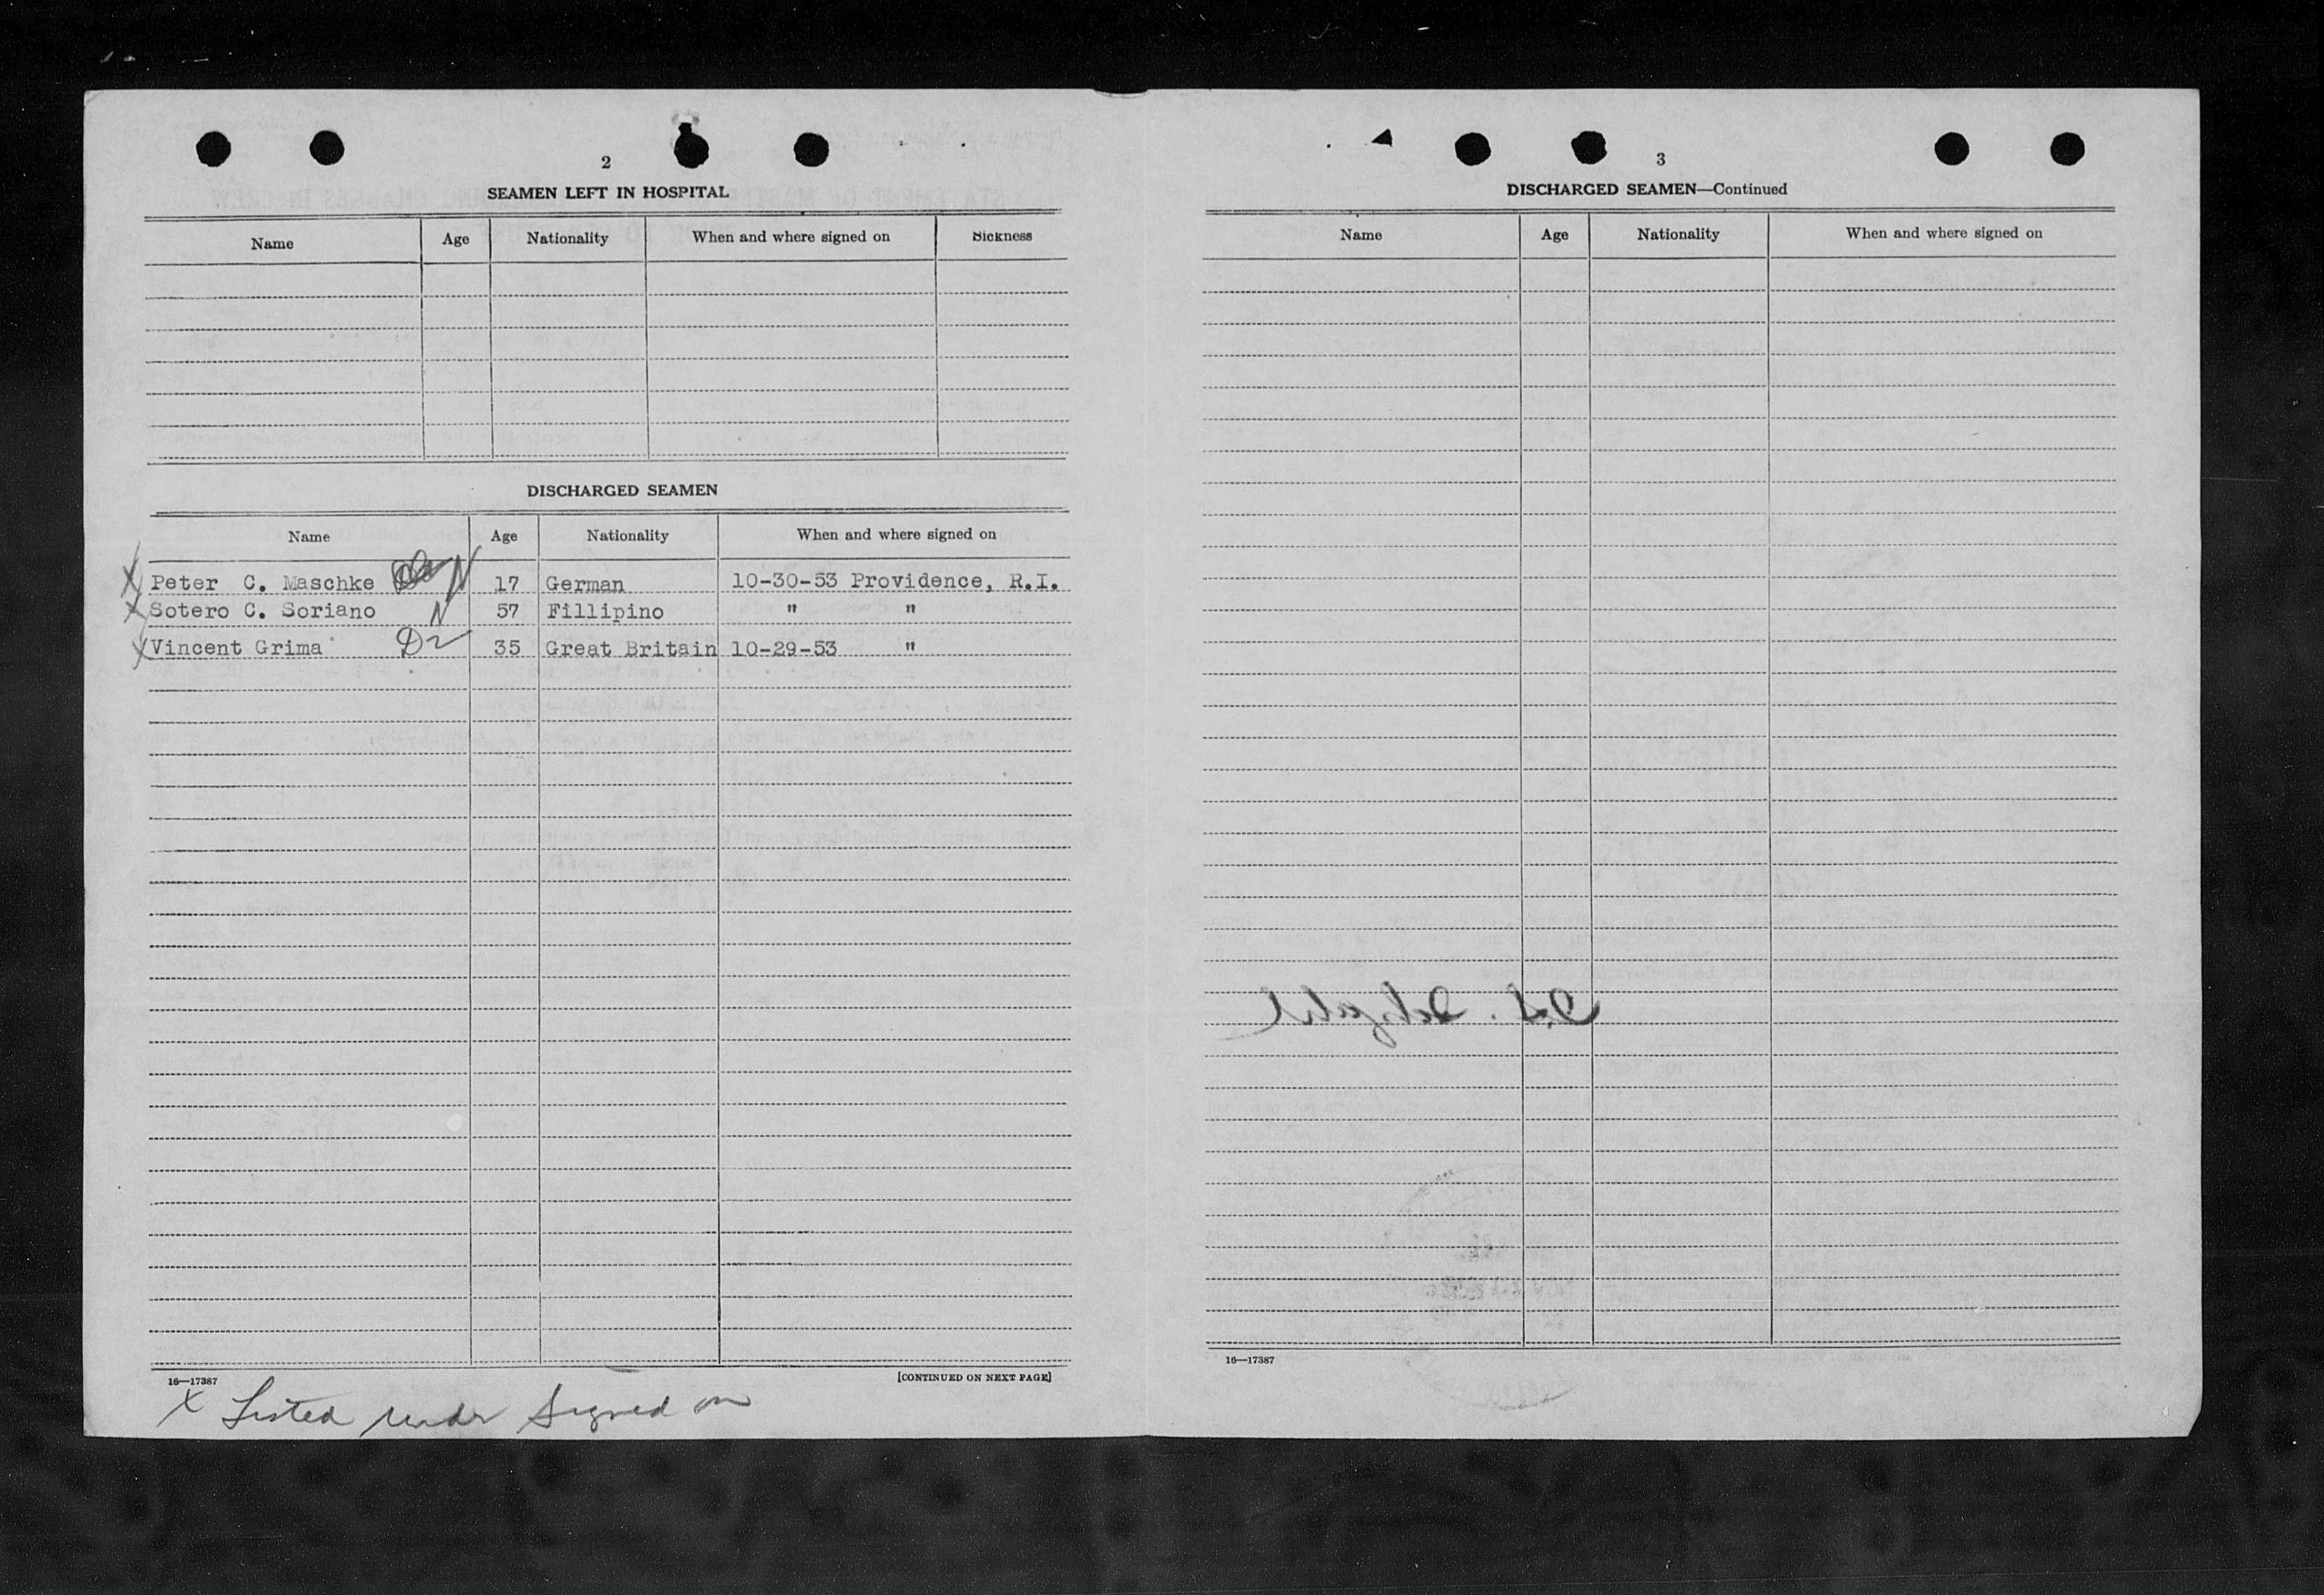 2
SEAMEN LEFT IN HOSPITAL
Name Age Nationality When and where signed on Sickness
DISCHARGED SEAMEN
Name Age Nationality When and where signed on
X Peter C. Maschke N 17 German 10-30-53 Providence, R.I.
X Sotero C. Soriano N 57 Fillipino " "
X Vincent Grima D2 35 Great Britain 10-29-53 "
16—17387 [CONTINUED ON NEXT PAGE]
X Listed under Signed on
3
DISCHARGED SEAMEN—Continued
Name Age Nationality When and where signed on
16—17387